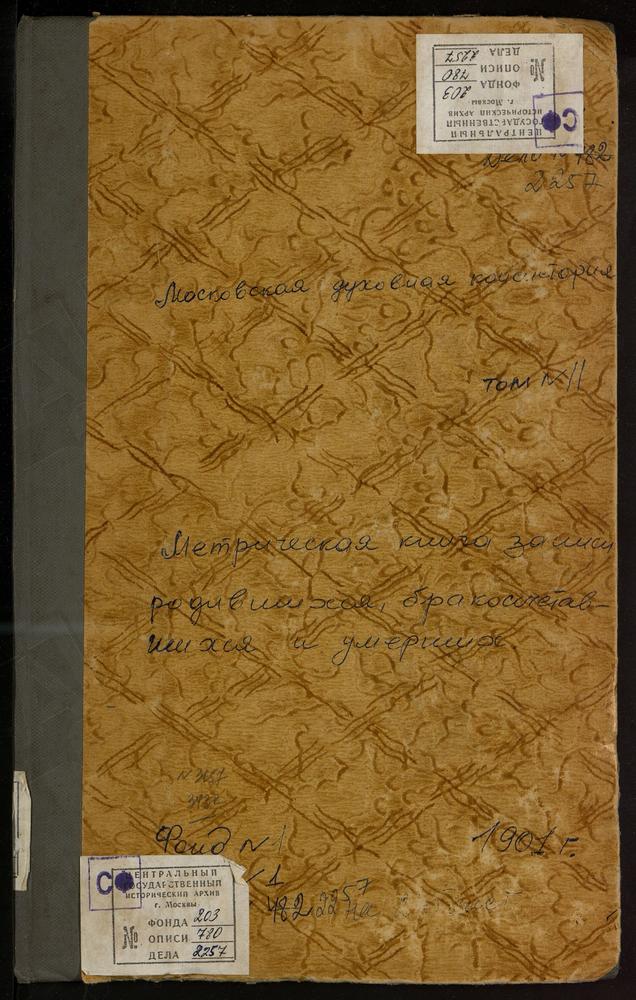 ЦЕНТРАЛЬНЫЙ
ГОСУДАРСТВЕННЫЙ
ИСТОРИЧЕСКИЙ АРХИВ
г. Москвы
ФОНДА 203
№ ОПИСИ 780
ДЕЛА 2257
С
Дело № 482
2257
Московская духовная консистория
том № 11
Метрическая книга записи
родившихся, бракосочетав-
шихся и умерших.
Фонд № 1
1901 г.
1
482 2257
на
С
ЦЕНТРАЛЬНЫЙ
ГОСУДАРСТВЕННЫЙ
ИСТОРИЧЕСКИЙ АРХИВ
г. Москвы
ФОНДА 203
№ ОПИСИ 780
ДЕЛА 2257